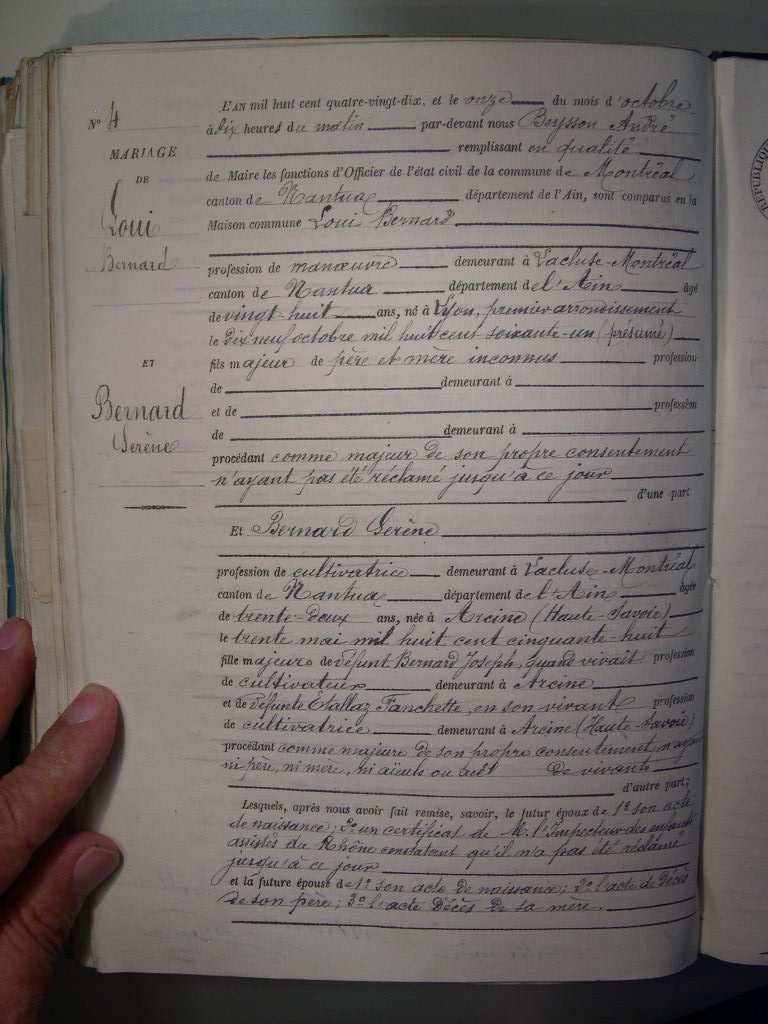 L'AN mil huit cent quatre-vingt-dix, et le onze du mois d'octobre
N° 4
à dix heures du matin par-devant nous Boysson André
MARIAGE
remplissant en qualité
DE
de Maire les fonctions d'Officier de l'état civil de la commune de Montréal
canton de Nantua département de l'Ain, sont comparus en la
Loui
Maison commune Loui Bernard
Bernard
profession de manœuvre demeurant à Lacluse-Montréal
canton de Nantua département de l'Ain âgé
de vingt-huit ans, né à Lyon, premier arrondissement
le dix neuf octobre mil huit cent soixante-un (présumé)
ET
fils majeur de père et mère inconnus profession
de demeurant à
Bernard
et de profession
Serène
de demeurant à
procédant comme majeur de son propre consentement
n'ayant pas été réclamé jusqu'à ce jour
d'une part
Et Bernard Serène
profession de cultivatrice demeurant à Lacluse-Montréal
canton de Nantua département de l'Ain âgée
de trente-deux ans, née à Arcine (Haute-Savoie)
le trente mai mil huit cent cinquante-huit
fille majeure de défunt Bernard Joseph, quand vivait profession
de cultivateur demeurant à Arcine
et de défunte Fanchette, en son vivant profession
de cultivatrice demeurant à Arcine (Haute-Savoie)
procédant comme majeure de son propre consentement n'ayant
ni père, ni mère, ni aïeuls ou de vivante
d'autre part;
Lesquels, après nous avoir fait remise, savoir, le futur époux de 1° son acte
de naissance; 2° un certificat de M. l'Inspecteur des enfants
assistés du Rhône constatant qu'il n'a pas été réclamé
jusqu'à ce jour
et la future épouse de 1° son acte de naissance; 2° l'acte de décès
de son père; 3° l'acte décès de sa mère.